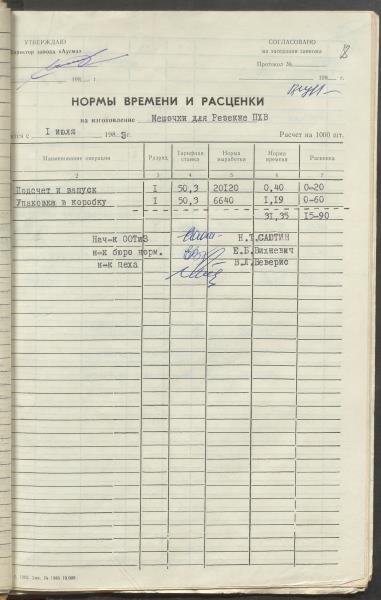 УТВЕРЖДАЮ
Директор завода «Аусма»
198 г.
СОГЛАСОВАНО
на заседании завкома
Протокол №
198 г.
8
НОРМЫ ВРЕМЕНИ И РАСЦЕНКИ
на изготовление Мешочки для Ревекие ПХВ
ится с I июля 1983г.
Расчет на 1000 шт.
Наименование операции Разряд Тарифная ставка Норма выработки Норма времени Расценка
2 3 4 5 6 7
Подсчет и запуск I 50,3 20120 0,40 0-20
Упаковка в коробку I 50,3 6640 I,I9 0-60
3I,35 I5-90
Нач-к ООТиЗ Н.Т.САЮТИН
н-к бюро норм. Е.Б.Вихневич
н-к цеха В.Л.Веверис